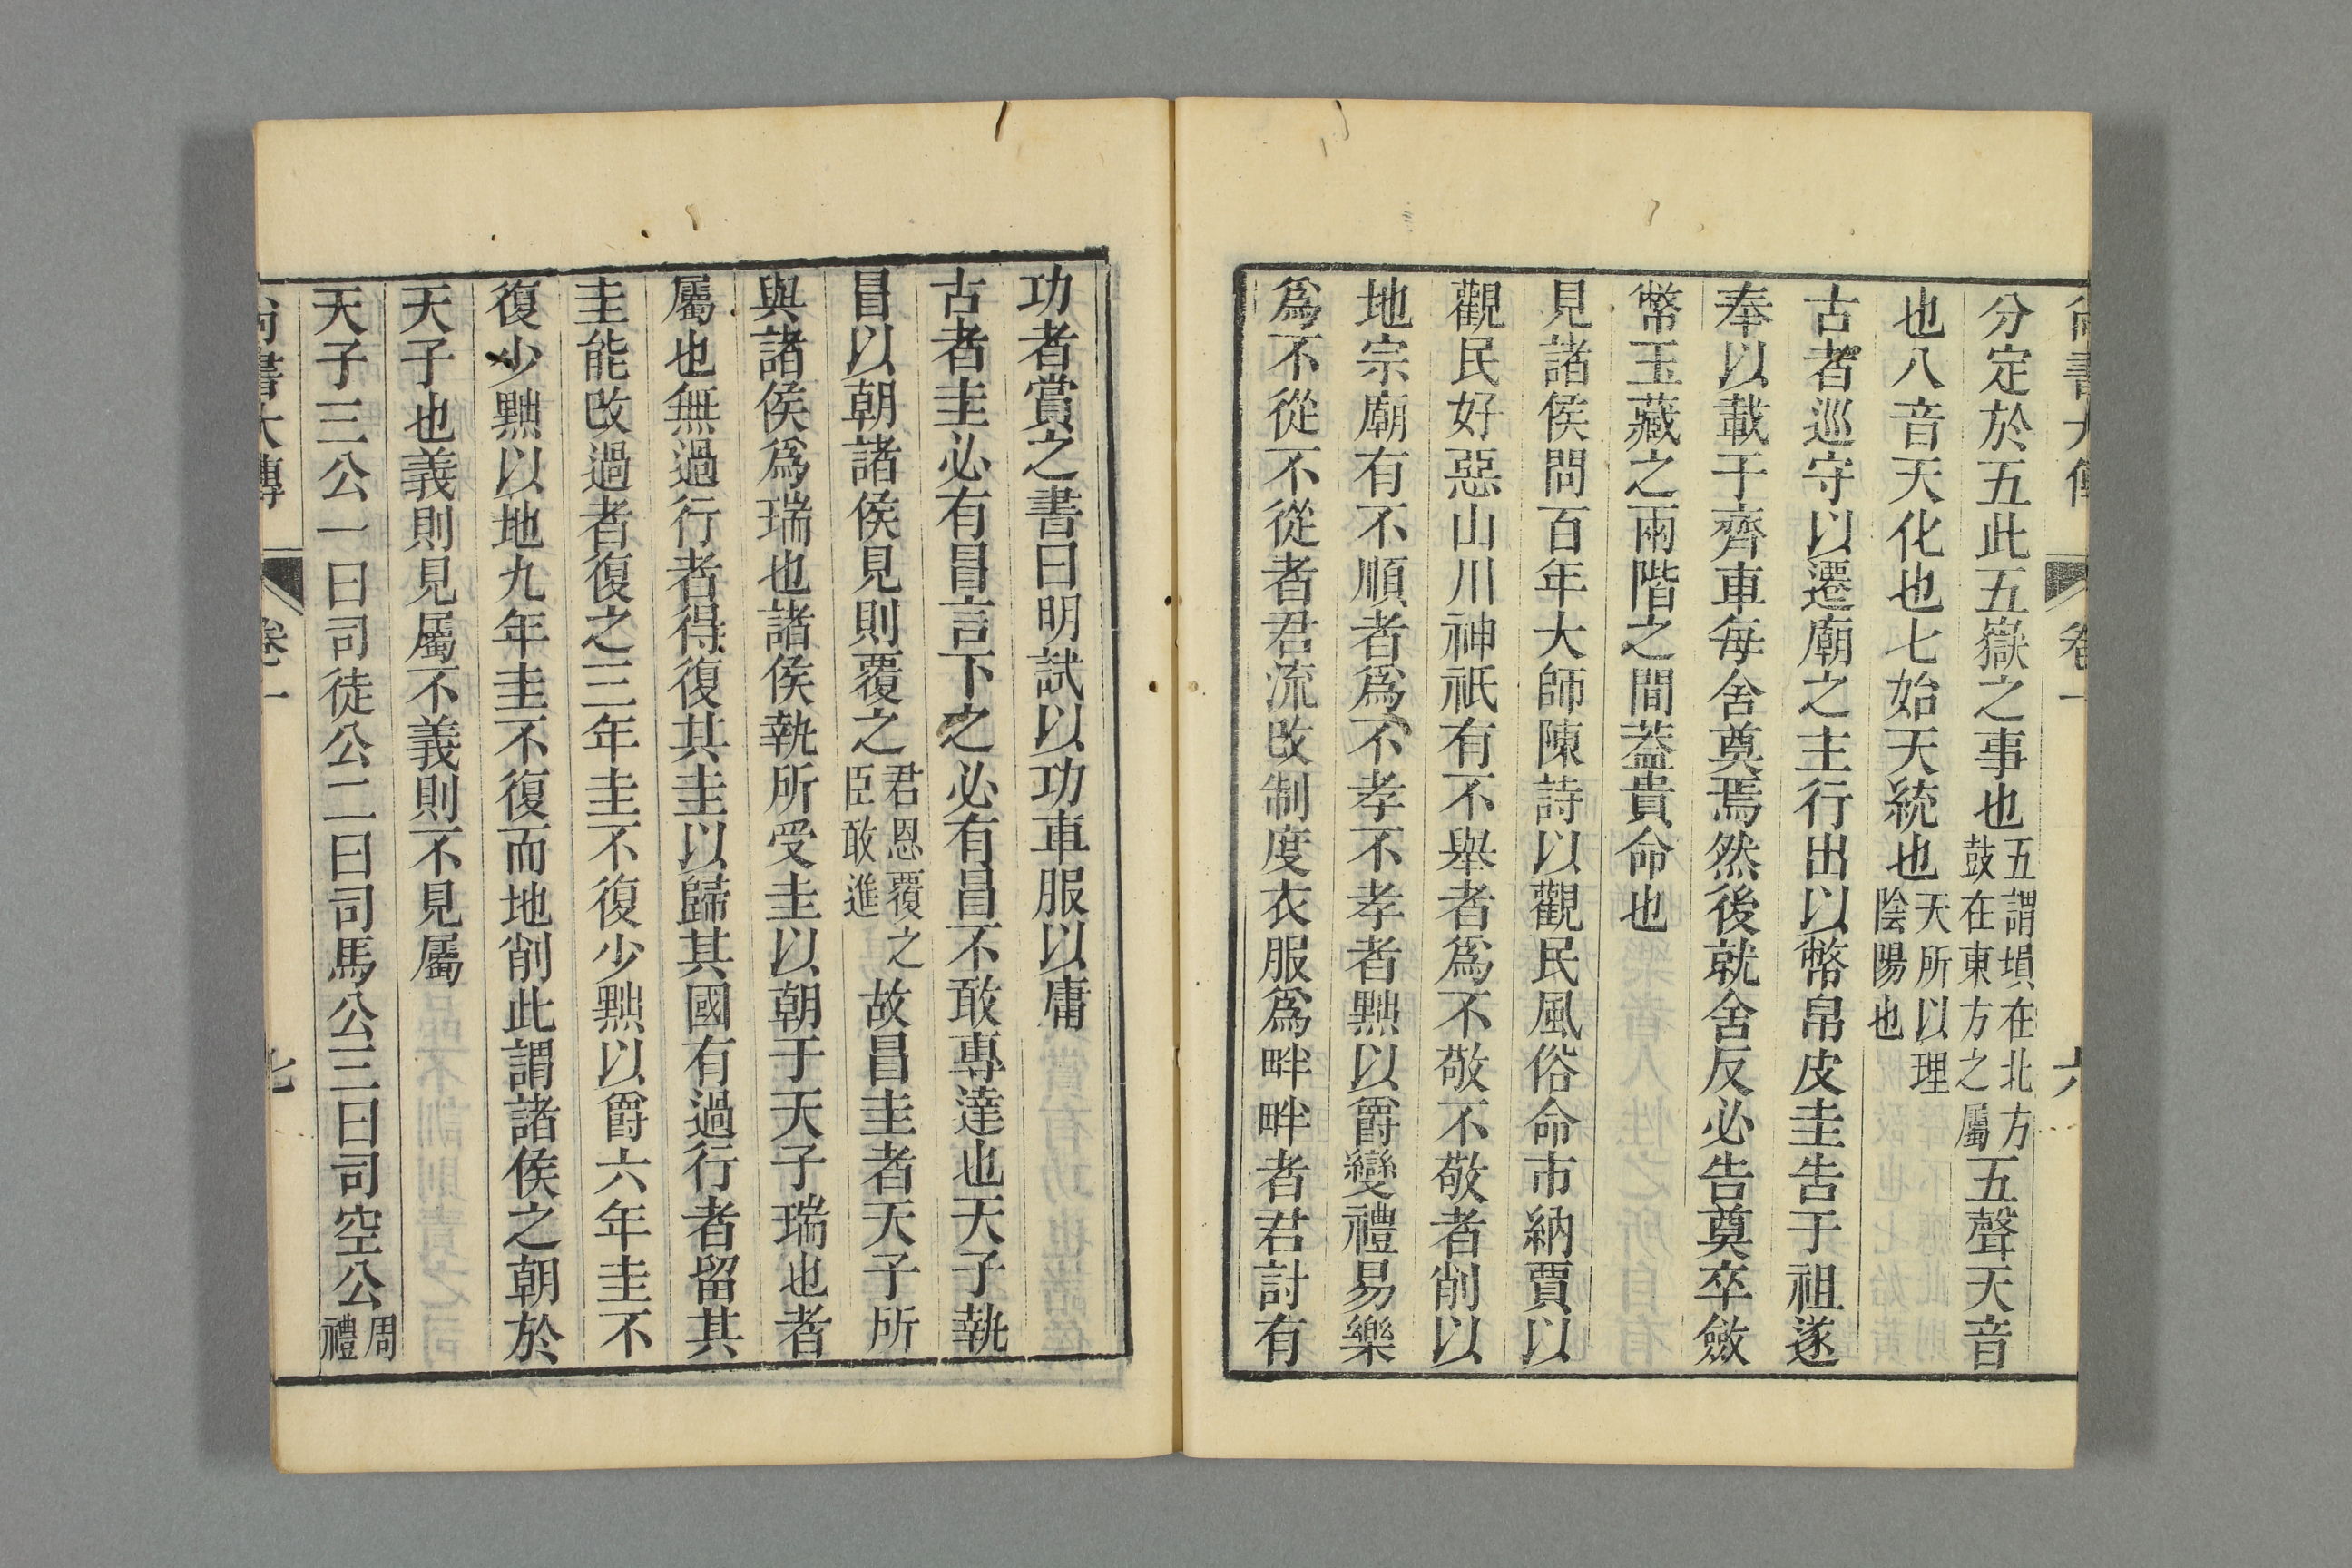 尚書大傳 卷一 六
分定於五此五嶽之事也五謂塤在北方鼓在東方之屬五聲天音
也八音天化也七始天統也天所以理陰陽也
古者巡守以遷廟之主行出以幣帛皮圭告于祖遂
奉以載于齊車每舍奠焉然後就舍反必告奠卒斂
幣玉藏之兩階之間蓋貴命也
見諸侯問百年大師陳詩以觀民風俗命市納賈以
觀民好惡山川神祇有不舉者爲不敬不敬者削以
地宗廟有不順者爲不孝不孝者黜以爵變禮易樂
爲不從不從者君流改制度衣服爲畔畔者君討有
功者賞之書曰明試以功車服以庸
古者圭必有冒言下之必有冒不敢專達也天子執
冒以朝諸侯見則覆之君恩覆之臣敢進故冒圭者天子所
與諸侯爲瑞也諸侯執所受圭以朝于天子瑞也者
屬也無過行者得復其圭以歸其國有過行者留其
圭能改過者復之三年圭不復少黜以爵六年圭不
復少黜以地九年圭不復而地削此謂諸侯之朝於
天子也義則見屬不義則不見屬
天子三公一曰司徒公二曰司馬公三曰司空公周禮
尚書大傳 卷一 七